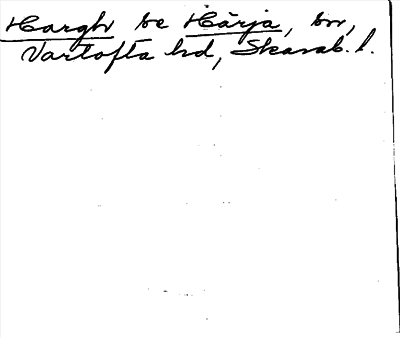 Hargh be Härja, sn,
Vartofta hd, Skarab. l.